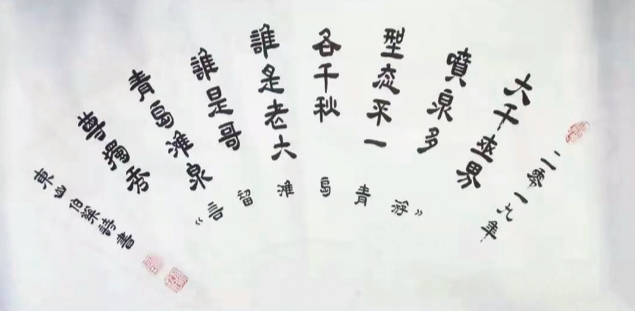 二零一六年
大千世界
噴泉多
型态不一
各千秋
誰是老大
誰是哥
青島灘泉
尊獨秀
《游青島灘留言》
東山伯樂詩書